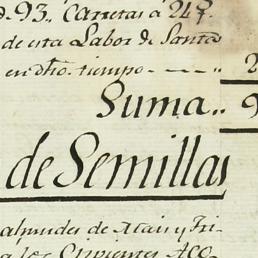 93. Carretas á 24
de esta Labor de Santa
en dho. tiempo - - - - "
Suma..
de Semillas
almudes de Mais y Fri-
a los Sirvientes Aco-